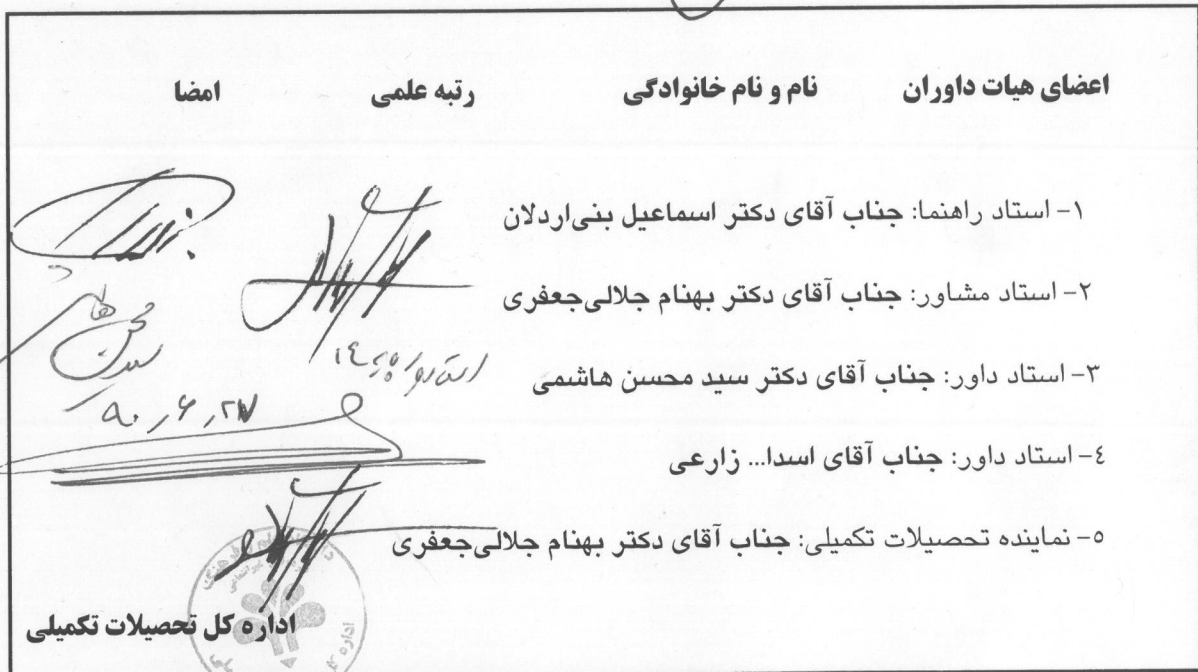 اعضای هیات داوران نام و نام خانوادگی رتبه علمی امضا
۱- استاد راهنما: جناب آقای دکتر اسماعیل بنی‌اردلان
۲- استاد مشاور: جناب آقای دکتر بهنام جلالی‌جعفری
۳- استاد داور: جناب آقای دکتر سید محسن هاشمی
٤- استاد داور: جناب آقای اسدا... زارعی
۵- نماینده تحصیلات تکمیلی: جناب آقای دکتر بهنام جلالی‌جعفری
اداره کل تحصیلات تکمیلی